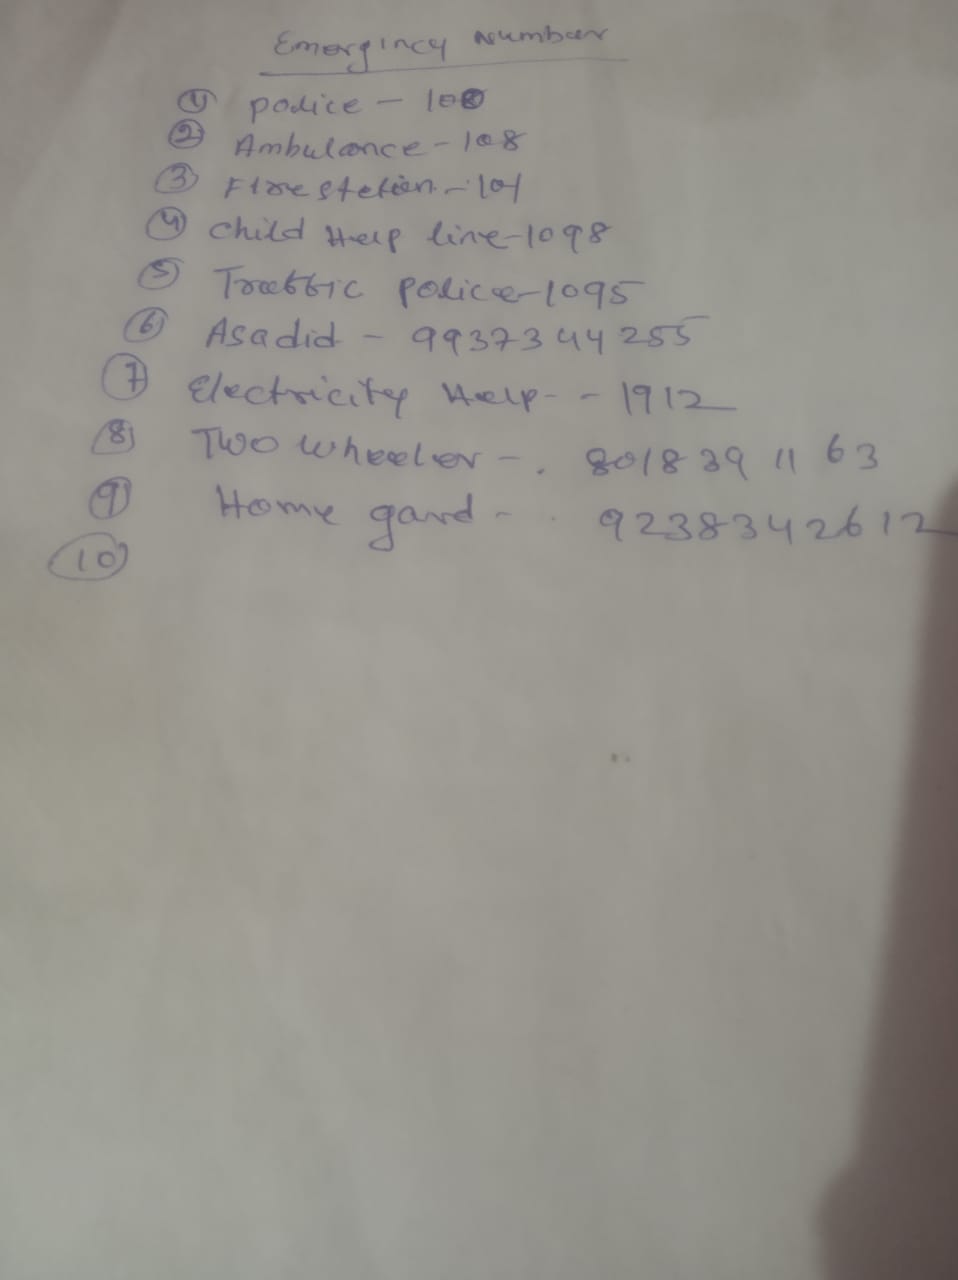 Emergincy Number
① police - 100
② Ambulance - 108
③ Fire stetion - 101
④ child Help line - 1098
⑤ Traffic police - 1095
⑥ Asadid - 9937344255
⑦ Electricity Help - - 1912
⑧ Two wheeler - . 8018 39 11 63
⑨ Home gard - . 9238342612
⑩